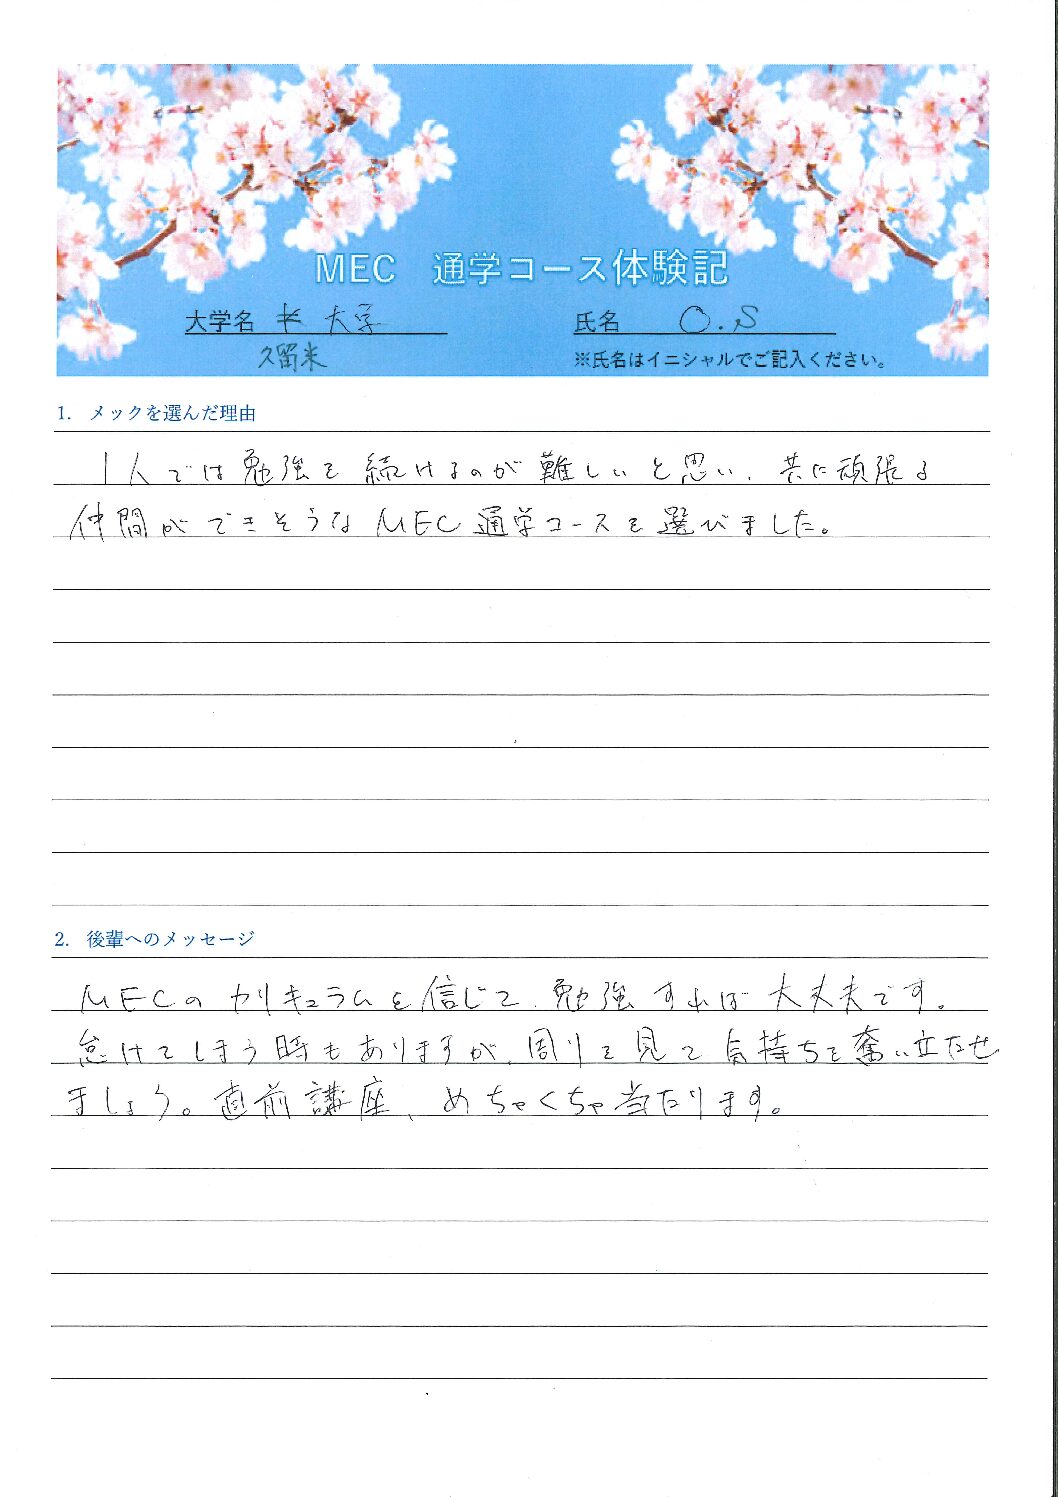 MEC 通学コース体験記
大学名 大学 氏名 O.S
久留米 ※氏名はイニシャルでご記入ください。
1. メックを選んだ理由
1人では勉強を続けるのが難しいと思い、共に頑張る
仲間ができそうなMEC通学コースを選びました。
2. 後輩へのメッセージ
MECのカリキュラムを信じて、勉強すれば大丈夫です。
怠けてしまう時もありますが、周りを見て気持ちを奮い立たせ
ましょう。直前講座、めちゃくちゃ当たります。